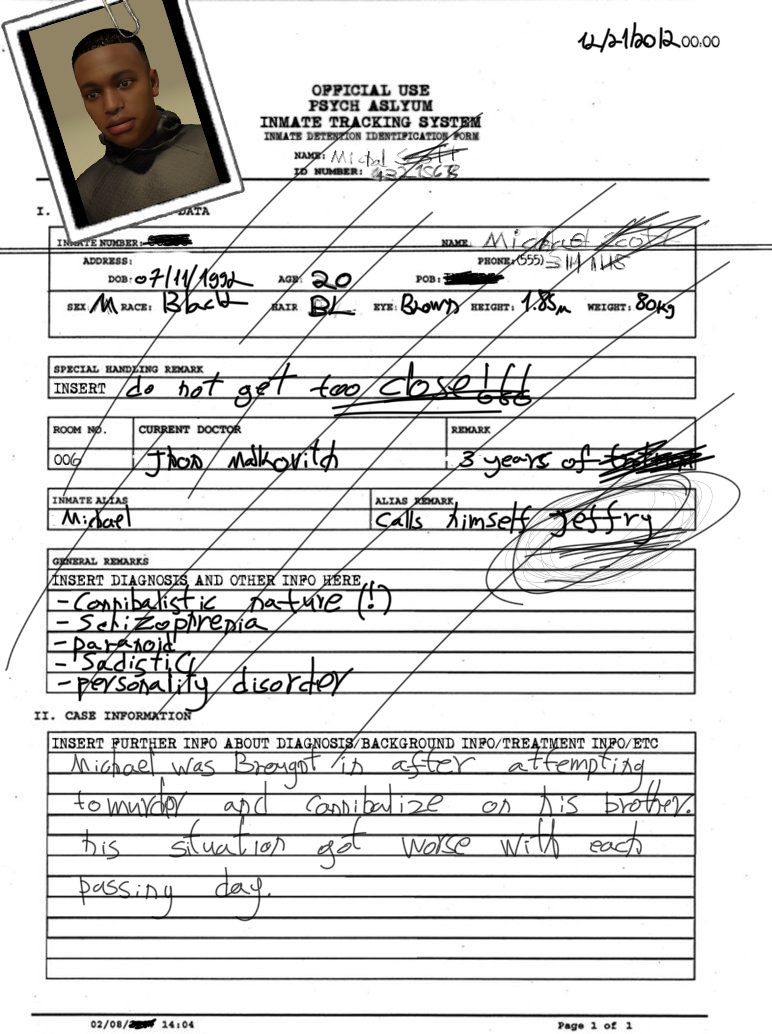 12/21/2012 00:00
OFFICIAL USE
PSYCH ASLYUM
INMATE TRACKING SYSTEM
INMATE DETENTION IDENTIFICATION FORM
NAME: Michal Scott
ID NUMBER:
I. DATA
INMATE NUMBER: NAME: Michael Scott
ADDRESS: PHONE: (555)
DOB: 07/11/1992 AGE: 20 POB:
SEX: M RACE: Black HAIR BL EYE: Brown HEIGHT: 1.85m WEIGHT: 80kg
SPECIAL HANDLING REMARK
INSERT do not get too close!!!
ROOM NO. CURRENT DOCTOR REMARK
006 Jhon Malkovitch 3 years of
INMATE ALIAS ALIAS REMARK
Michael Calls himself Jeffry
GENERAL REMARKS
INSERT DIAGNOSIS AND OTHER INFO HERE
- Cannibalistic nature (!)
- Schizophrenia
- paranoid
- Sadistic
- personality disorder
II. CASE INFORMATION
INSERT FURTHER INFO ABOUT DIAGNOSIS/BACKGROUND INFO/TREATMENT INFO/ETC
Michael was Brought in after attempting
to murder and cannibalize on his brother.
his situation got worse with each
passing day.
02/08/ 14:04 Page 1 of 1